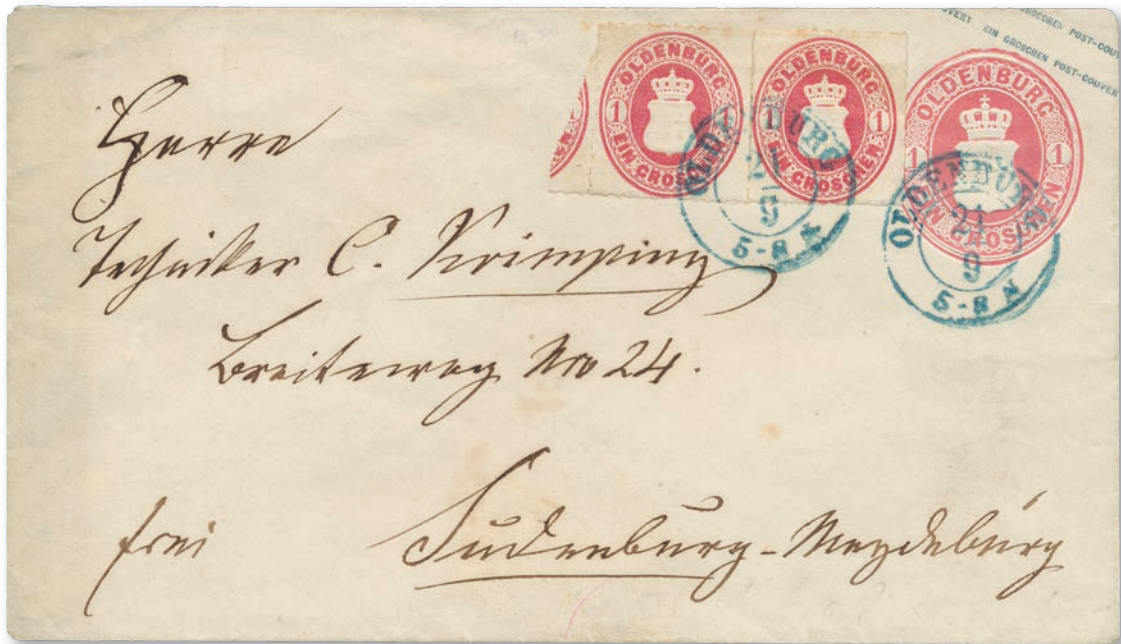 GROSCHEN POST-COUV
COUVERT EIN GROSCHEN POST-COUVERT
OLDENBURG
1 1
EIN GROSCHEN
OLDENBURG
1 1
EIN GROSCHEN
OLDENBURG
1 1
EIN GROSCHEN
OLDENBURG
21
9
5-8 N
OLDENBURG
21
9
5-8 N
Herrn
Techniker C.
Breiteweg No 24.
frei Sudenburg-Magdeburg